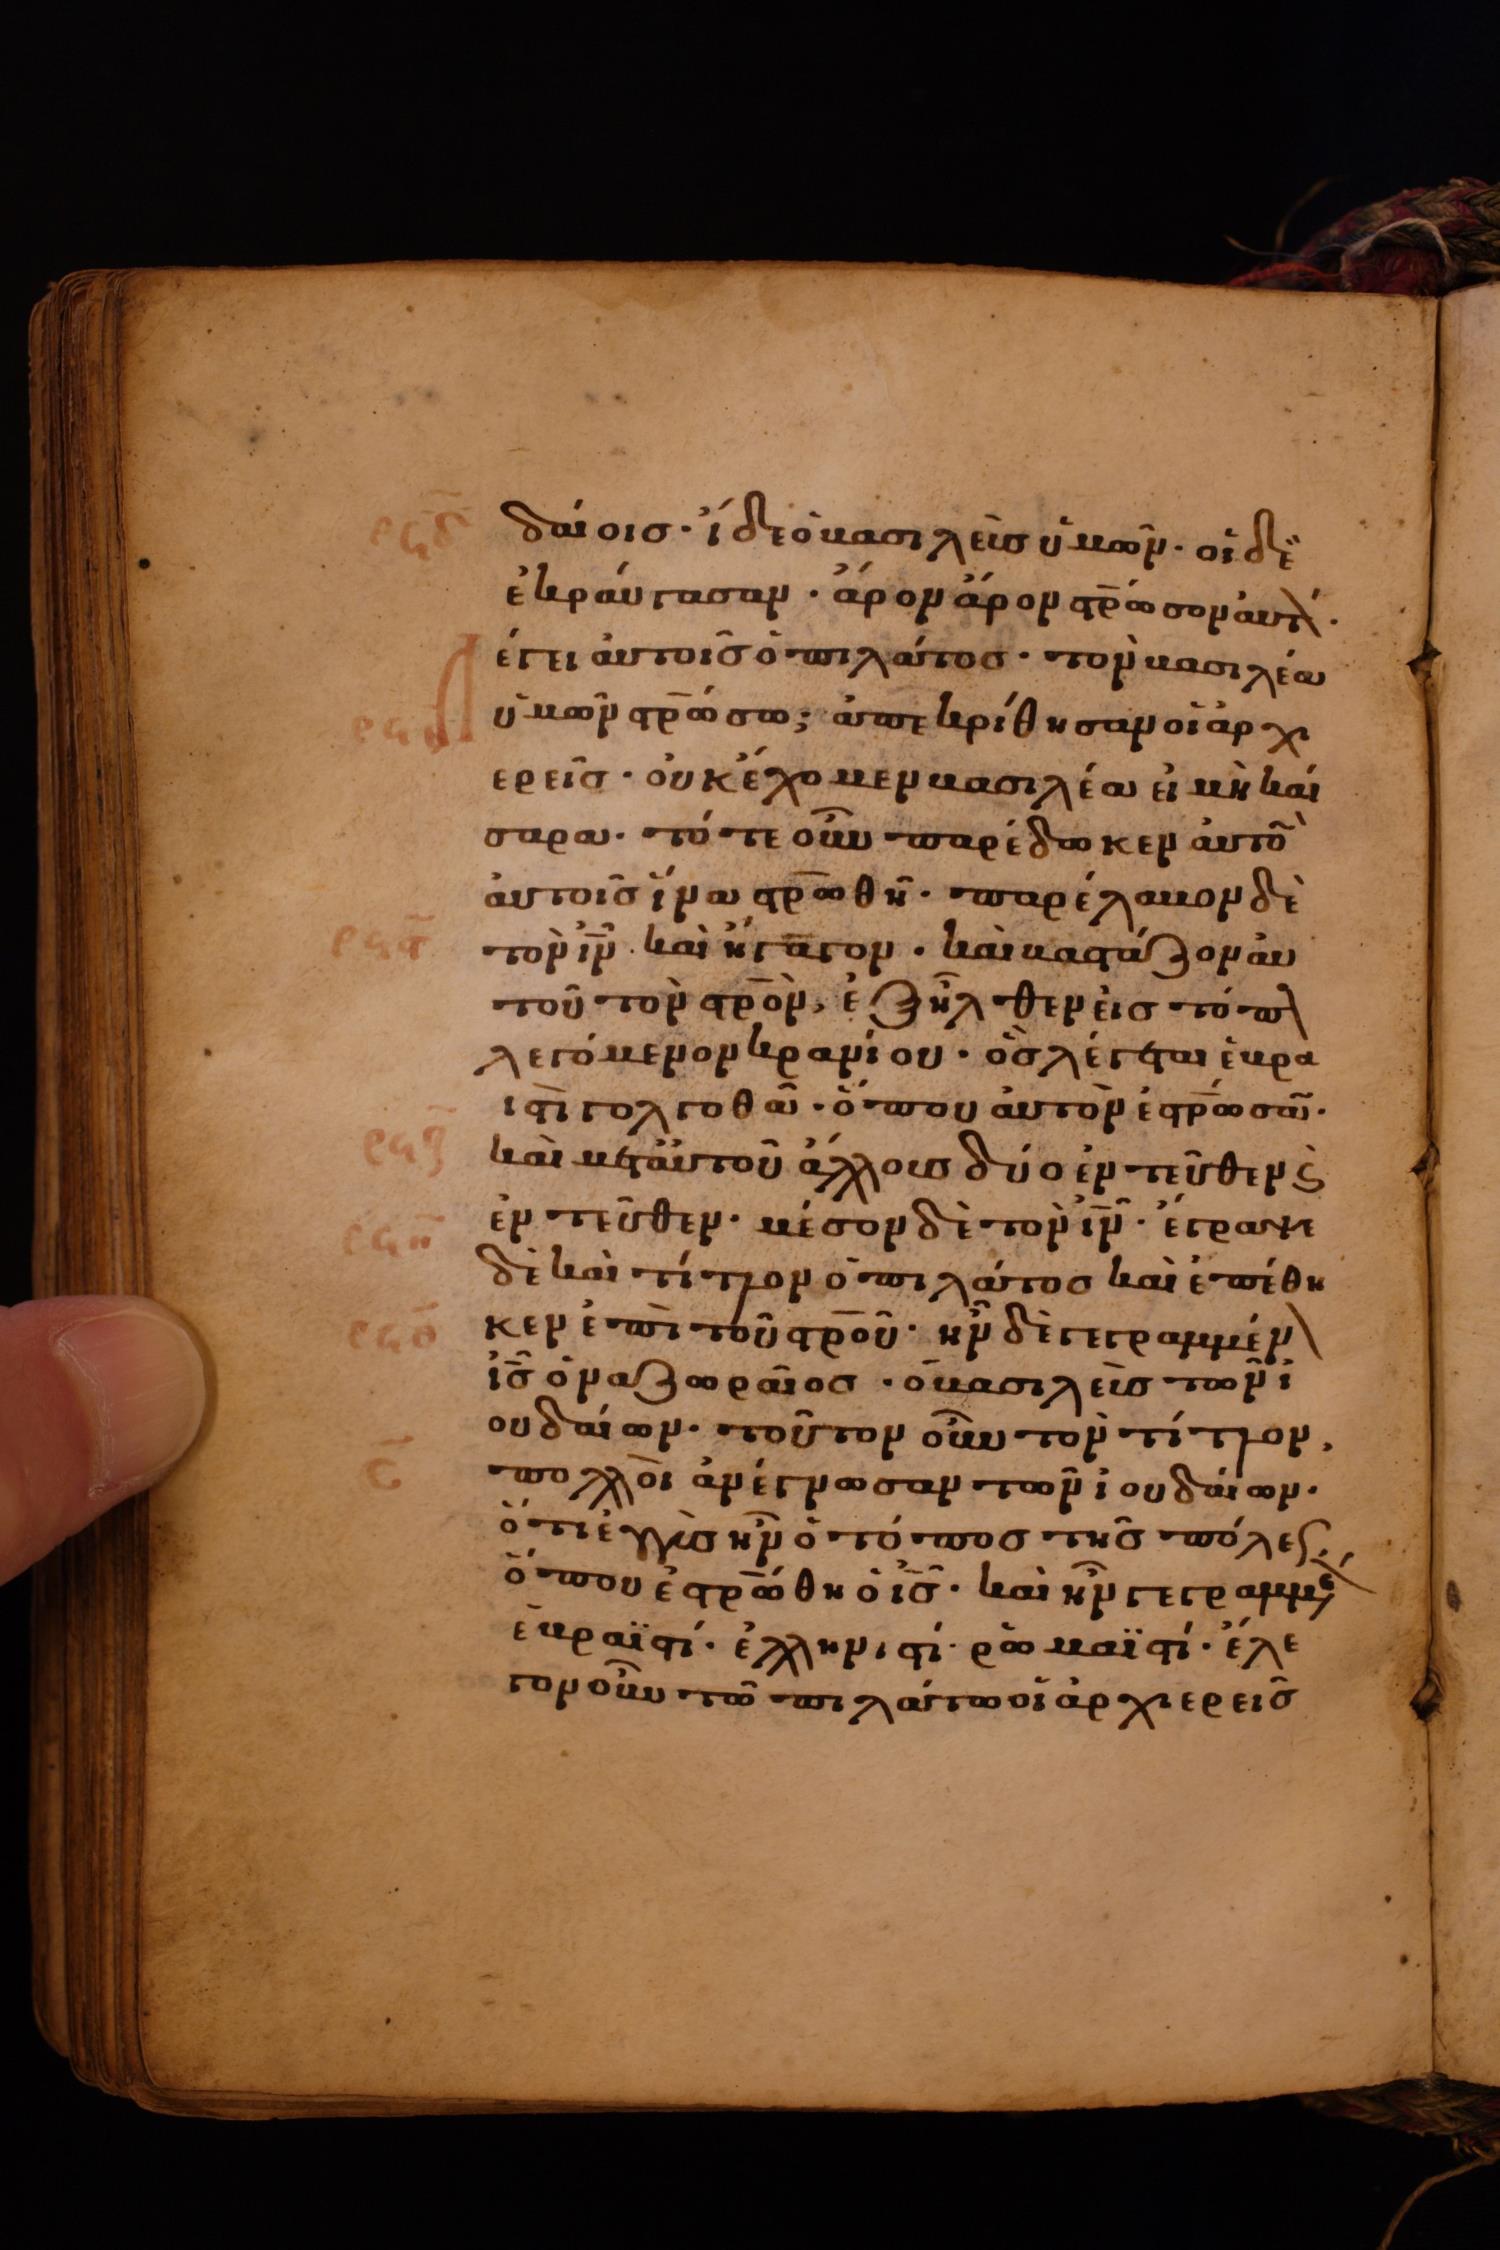 ρϟδ
δαίοισ· ἴδε ὁ βασιλεὺσ ὑμῶν· οἱ δὲ
ἐκραύγασαν · ἆρον ἆρον στ̅ρ̅ώσον αὐτ́·
λέγει αὐτοῖσ ὁ πιλάτοσ· τὸν βασιλέα
ὑμῶν στ̅ρ̅ώσω; ἀπεκρίθησαν οἱ ἀρχι
ερεῖσ· οὐκ ἔχομεν βασιλέα εἰ μὴ καί
σαρα· τότε οὖν παρέδωκεν αὐτὸ
αὐτοῖσ ἵνα στ̅ρ̅ωθῆ· παρέλαβον δὲ
ρϟϛ
τὸν ἰν̅ καὶ ἤγαγον · καὶ βαστάζον αὐ
τοῦ τὸν στ̅ρ̅ὸν, ἐξῆλθεν εἰσ τό π
λεγόμενον κρανίου · ὃσ λέγεται ἑβρα
ιστὶ γολγοθᾶ · ὅπου αὐτὸν ἐστ̅ρ̅ωσα̅·
ρϟζ
καὶ μετ᾽ αὐτοῦ ἄλλουσ δύο ἐντεῦθεν ϗ
ρϟη
ἐντεῦθεν· μέσον δὲ τὸν ἰν̅· ἔγραψε
δὲ καὶ τίτλον ὁ πιλάτοσ καὶ ἐπέθη
ρϟθ
κεν ἐπὶ τοῦ στ̅ρ̅οῦ· ἦν δὲ γεγραμμέν
ἰσ̅ ὁ ναζωραῖοσ · ὁ βασιλεὺσ τῶν ἰ
ουδαίων· τοῦτον οὖν τὸν τίτλον,
σ̅
πολλοὶ ἀνέγνωσαν τῶν ἰουδαίων·
ὅτι ἐγγὺσ ἦν ὁ τόποσ τῆσ πόλε
ὅπου ἐστ̅ρ̅ώθη ὁ ἰσ̅· καὶ ἦν γεγραμμ
ἑβραϊστί· ἑλληνιστί· ῥωμαϊστί· ἔλε
γον οὖν τῶ πιλάτω οἱ ἀρχιερεῖσ